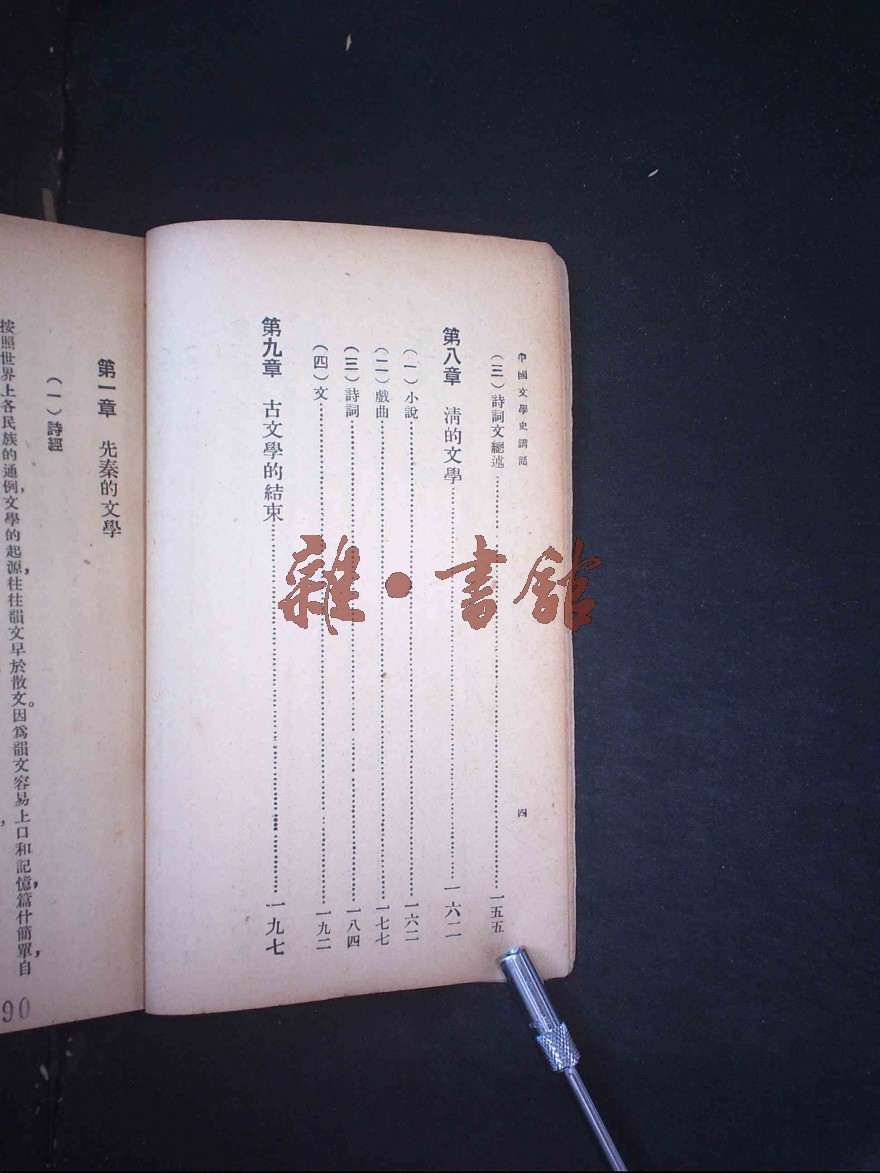 中國文學史講話
四
(三)詩詞文總述……一五五
第八章 淸的文學……一六二
(一)小說……一六二
(二)戲曲……一七七
(三)詩詞……一八四
(四)文……一九二
第九章 古文學的結束……一九七
第一章 先秦的文學
(一)詩經
按照世界上各民族的通例,文學的起源,往往韻文早於散文。因爲韻文容易上口和記憶,篇什簡單,自
90
雜·書館